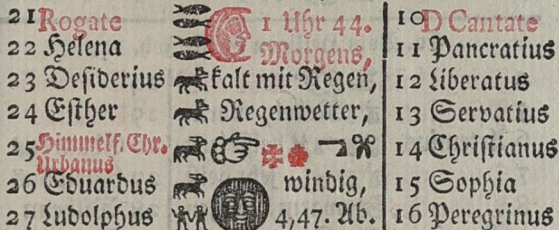 21 Rogate 1 Uhr 44. 10 D Cantate
22 Helena Morgens, 11 Pancratius
23 Desiderius kalt mit Regen, 12 Liberatus
24 Esther Regenwetter, 13 Servatius
25 Himmelf. Chr. Urbanus 14 Christianus
26 Eduardus windig, 15 Sophia
27 Ludolphus 4,47. Ab. 16 Peregrinus